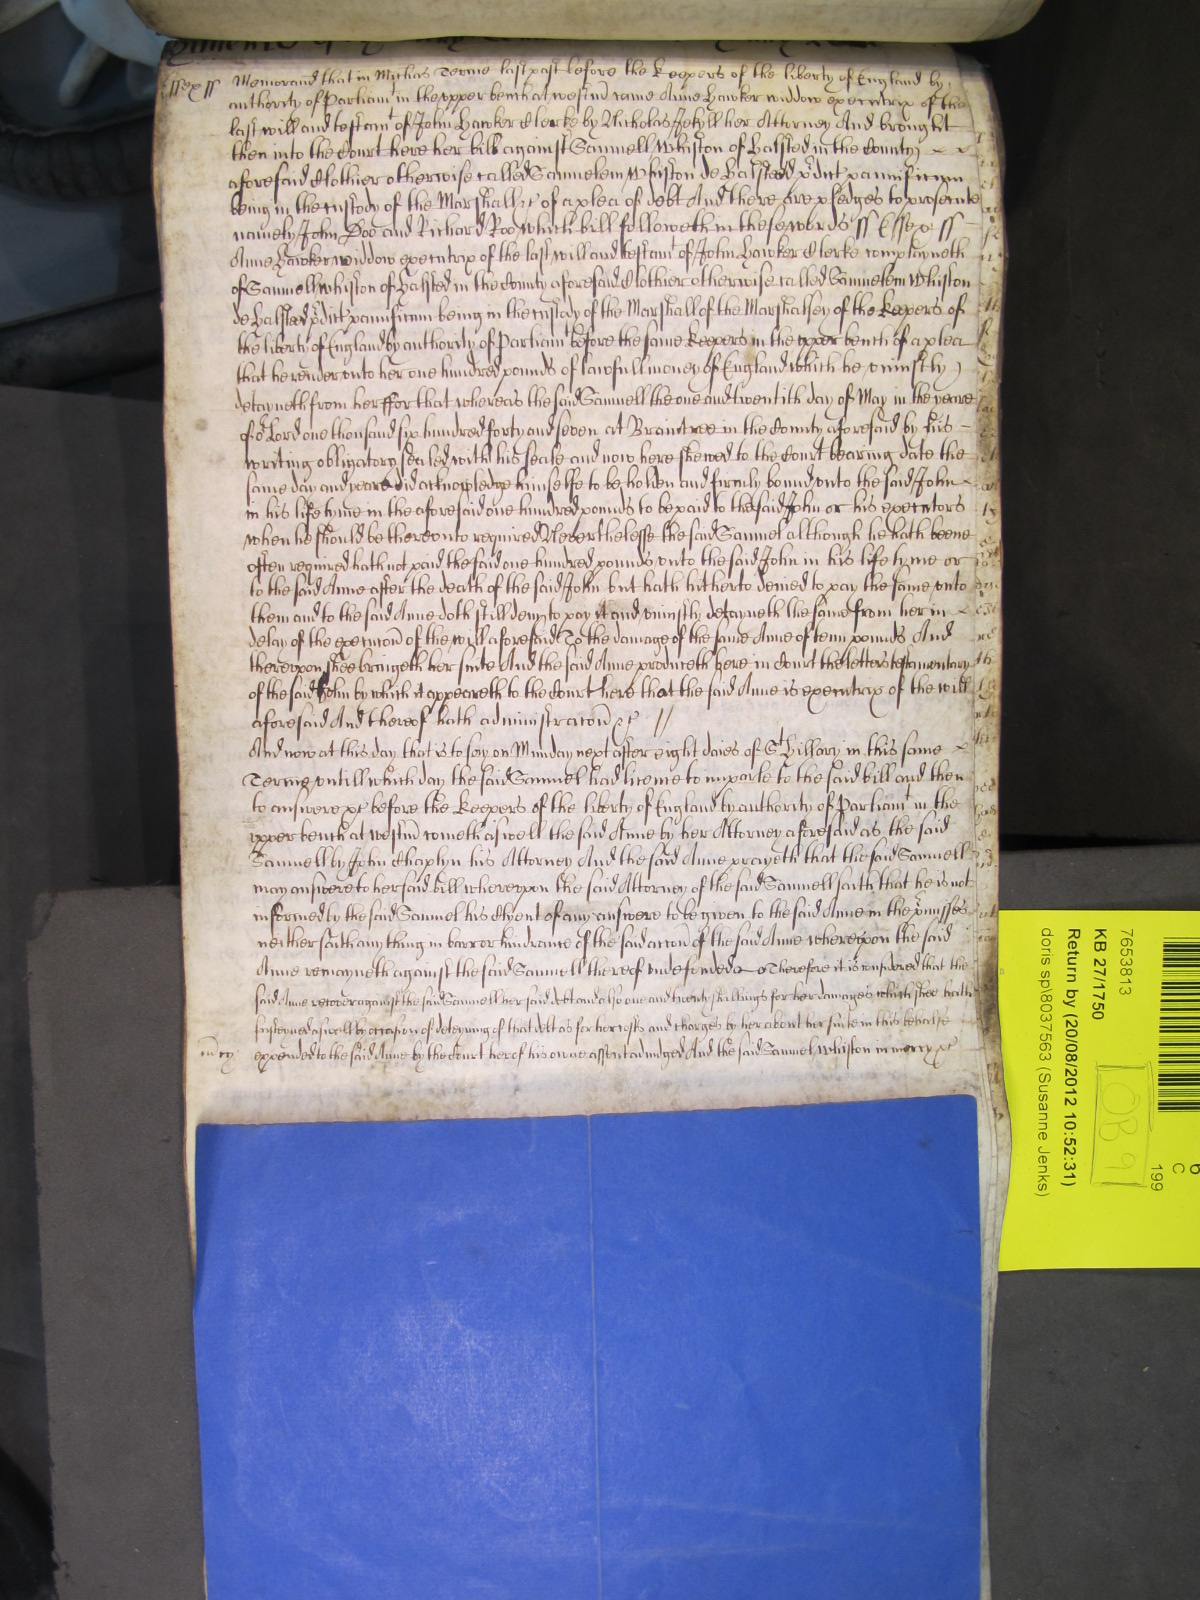 ssex ss Memorand that in Michas Terme last past before the Keepers of the liberty of England by
authority of Parliamt in the upper bench at westm came Anne Hawker widdow executrix of the
last will and testamt of John Hawker Clerke by Nicholas Jekyll her Attorney And brought
then into the Court here her bill against Samuell Whiston of Halsted in the County
aforesaid Clothier otherwise called Samuelem Whiston de Halsted pdict pannificum
being in the custody of the Marshall &c of a plea of debt And there are pledges to prosecute
namely John Doo and Richard Roo which bill followeth in these words ss Essex ss
Anne Hawker widdow executrix of the last will and testamt of John Hawker Clerke complayneth
of Samuell Whiston of Halsted in the County aforesaid Clothier otherwise called Samuelem Whiston
de Halsted pdict pannificum being in the custody of the Marshall of the Marshalsey of the Keepers of
the liberty of England by authority of Parliamt before the same Keepers in the upper bench of a plea
that he render unto her one hundred pounds of lawfull money of England which he uniustly
detayneth from her ffor that whereas the said Samuell the one and twentith day of May in the yeare
of or Lord one thousand six hundred forty and seven at Braintree in the County aforesaid by his
writing obligatory sealed with his seale and now here shewed to the Court bearing date the
same day and yeare did acknowledge himselfe to be holden and firmly bound unto the said John
in his life tyme in the aforesaid one hundred pounds to be paid to the said John or his executors
when he should be thereunto required Neverthelesse the said Samuel although he hath beene
often required hath not paid the said one hundred pounds unto the said John in his life tyme or
to the said Anne after the death of the said John but hath hitherto denied to pay the same unto
them and to the said Anne doth still deny to pay it and uniustly detayneth the same from her in
delay of the execucon of the will aforesaid To the damage of the same Anne of tenn pounds And
thereupon shee bringeth her suite And the said Anne produceth here in Court the letters testamentary
of the said John by which it appeareth to the Court here that the said Anne is executrix of the will
aforesaid And thereof hath administracon &c //
And now at this day that is to say on Munday next after eight daies of St Hillary in this same
Terme untill which day the said Samuel had licence to imparle to the said bill and then
to answere &c before the Keepers of the liberty of England by authority of Parliamt in the
upper bench at westm cometh aswell the said Anne by her Attorney aforesaid as the said
Samuell by John Chaplyn his Attorney And the said Anne prayeth that the said Samuell
may answere to her said bill whereupon the said Attorney of the said Samuell saith that he is not
informed by the said Samuel his Clyent of any answere to be given to the said Anne in the pmisses
neither saith any thing in barr or hindrance of the said accon of the said Anne whereupon the said
Anne remayneth against the said Samuell thereof undefended Therefore it is considered that the
said Anne recover against the said Samuell her said debt and also one and twenty shillings for her damages which shee hath
susteyned aswell by occasion of deteyning of that debt as for her costs and charges by her about her suite in this behalfe
expended to the said Anne by the Court here of his owne assent adiudged And the said Samuel Whiston in mercy &c
mcy
7653813
KB 27/1750
Return by (20/08/2012 10:52:31)
doris sp\8037563 (Susanne Jenks)
OB 9
199
C
6